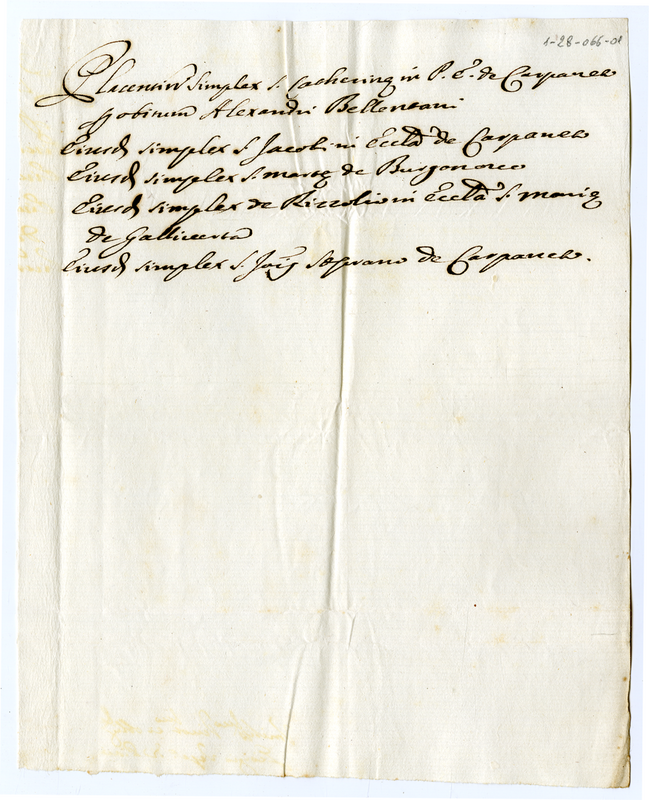 1-28-066-01
Placentin simplex S. Catherinę in P. E. de Carpaneto
p obitum Alexandri Bellentani
Eiusd simplex S. Jacobi in Eccla de Carpaneto
Eiusd simplex S. Martę de Burgonovo
Eiusd simplex de Rizzolio in Eccla S. Marię
de
Eiusd simplex S. Jois de Carpaneto.